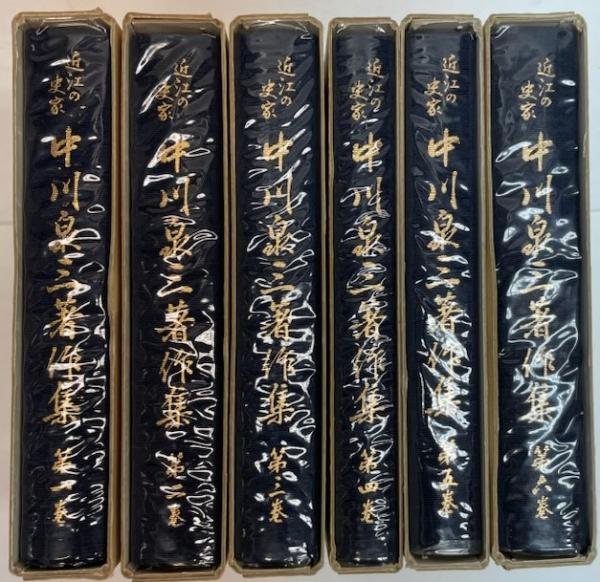 近江の
史家
中川泉三著作集
第一巻
近江の
史家
中川泉三著作集
第二巻
近江の
史家
中川泉三著作集
第三巻
近江の
史家
中川泉三著作集
第四巻
近江の
史家
中川泉三著作集
第五巻
近江の
史家
中川泉三著作集
第六巻